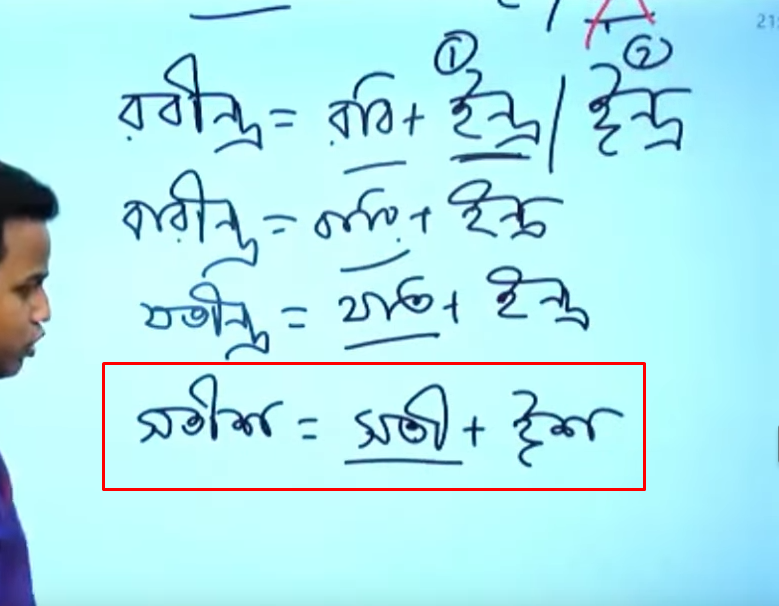 রবীন্দ্র = রবি + ইন্দ্র / ঈন্দ্র
বারীন্দ্র = বারি + ইন্দ্র
যতীন্দ্র = যতি + ইন্দ্র
সতীশ = সতী + ঈশ